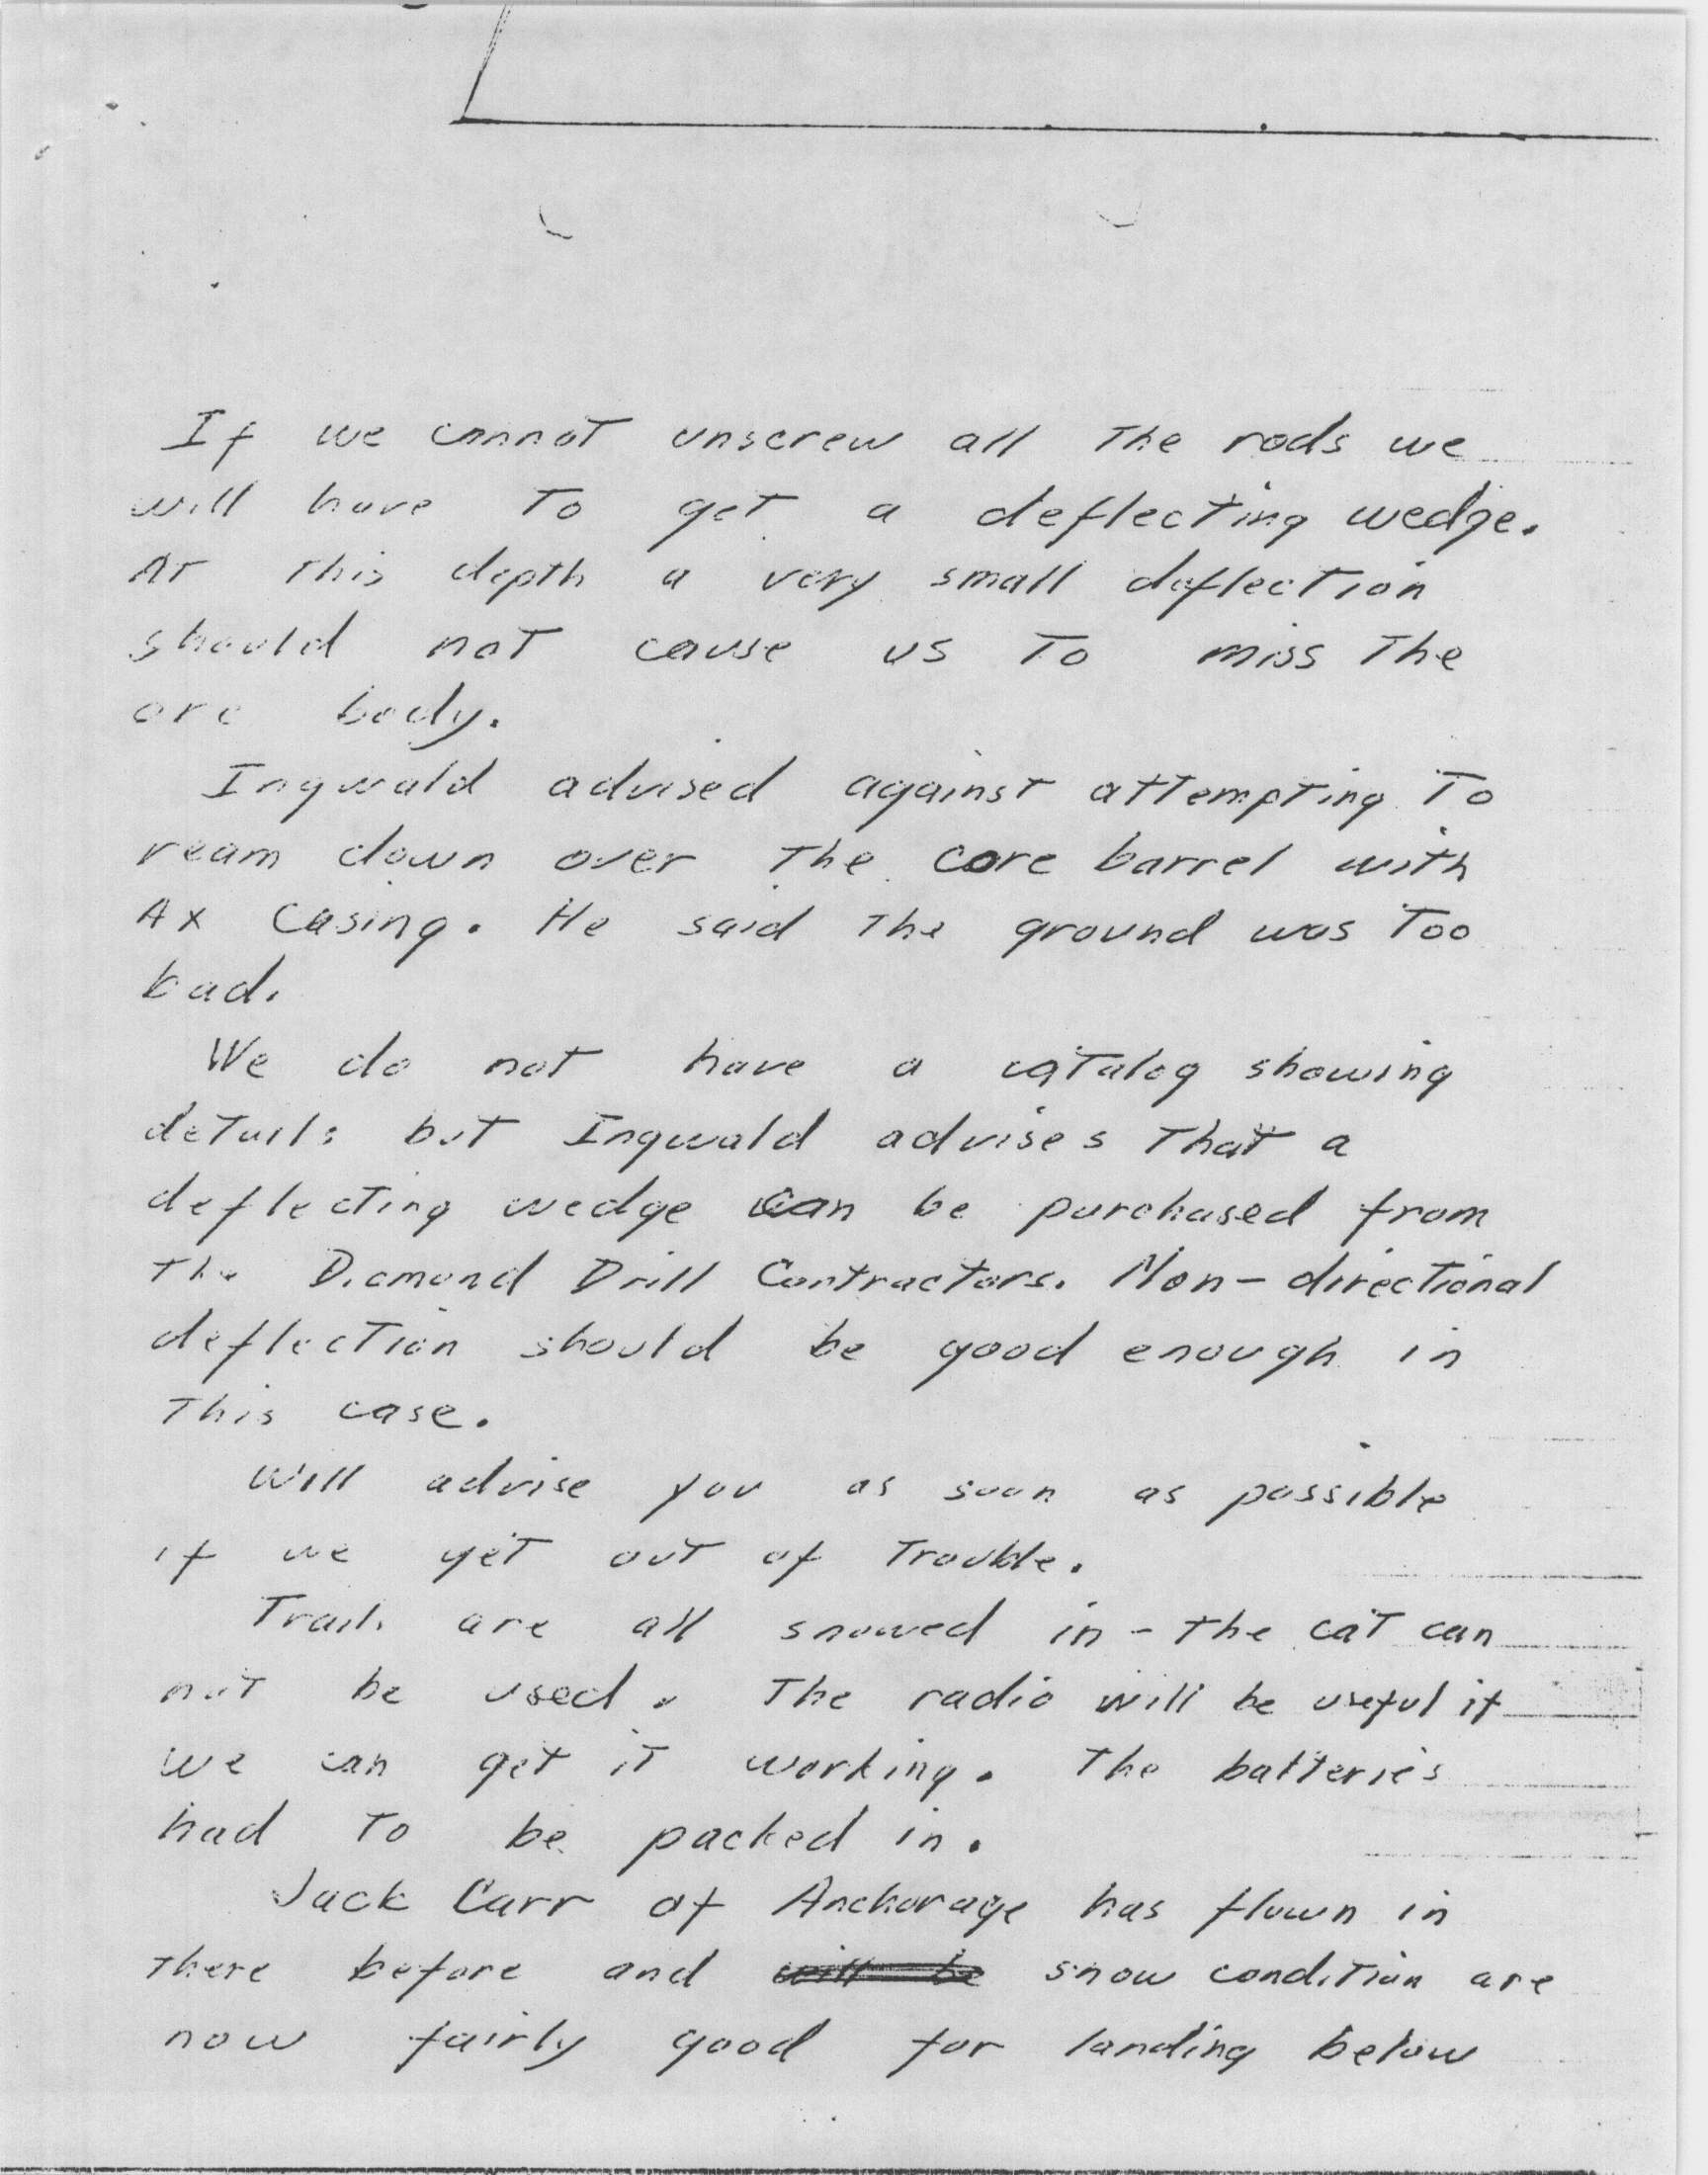 If we cannot unscrew all the rods we
will have to get a deflecting wedge.
At this depth a very small deflection
should not cause us to miss the
ore body.
Ingwald advised against attempting to
ream down over the core barrel with
AX Casing. He said the ground was too
bad.
We do not have a catalog showing
details but Ingwald advises that a
deflecting wedge can be purchased from
the Diamond Drill Contractors. Non-directional
deflection should be good enough in
this case.
Will advise you as soon as possible
if we get out of trouble.
Trails are all snowed in - the cat can
not be used. The radio will be useful if
we can get it working. The batteries
had to be packed in.
Jack Carr of Anchorage has flown in
there before and will be snow condition are
now fairly good for landing below